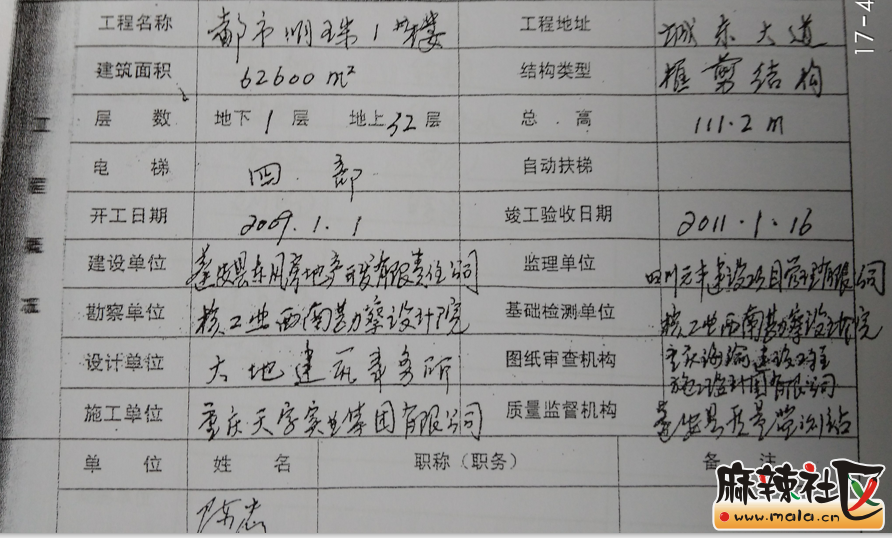 17-4
工程名称 都市明珠1#楼 工程地址 城东大道
建筑面积 62600m² 结构类型 框剪结构
层 数 地下1层 地上32层 总 高 111.2m
电 梯 四 部 自动扶梯
开工日期 2009.1.1 竣工验收日期 2011.1.16
工程概况
建设单位 蓬安县东风房地产开发有限责任公司 监理单位 四川元丰建设项目管理有限公司
勘察单位 核工业西南勘察设计院 基础检测单位 核工业西南勘察设计院
设计单位 大地建筑事务所 图纸审查机构 重庆渝建设工程
施工图设计 有限公司
施工单位 重庆天字实业集团有限公司 质量监督机构 蓬安县质量监测站
单 位 姓 名 职称（职务） 备 注
陈志
麻辣社区
www.mala.cn